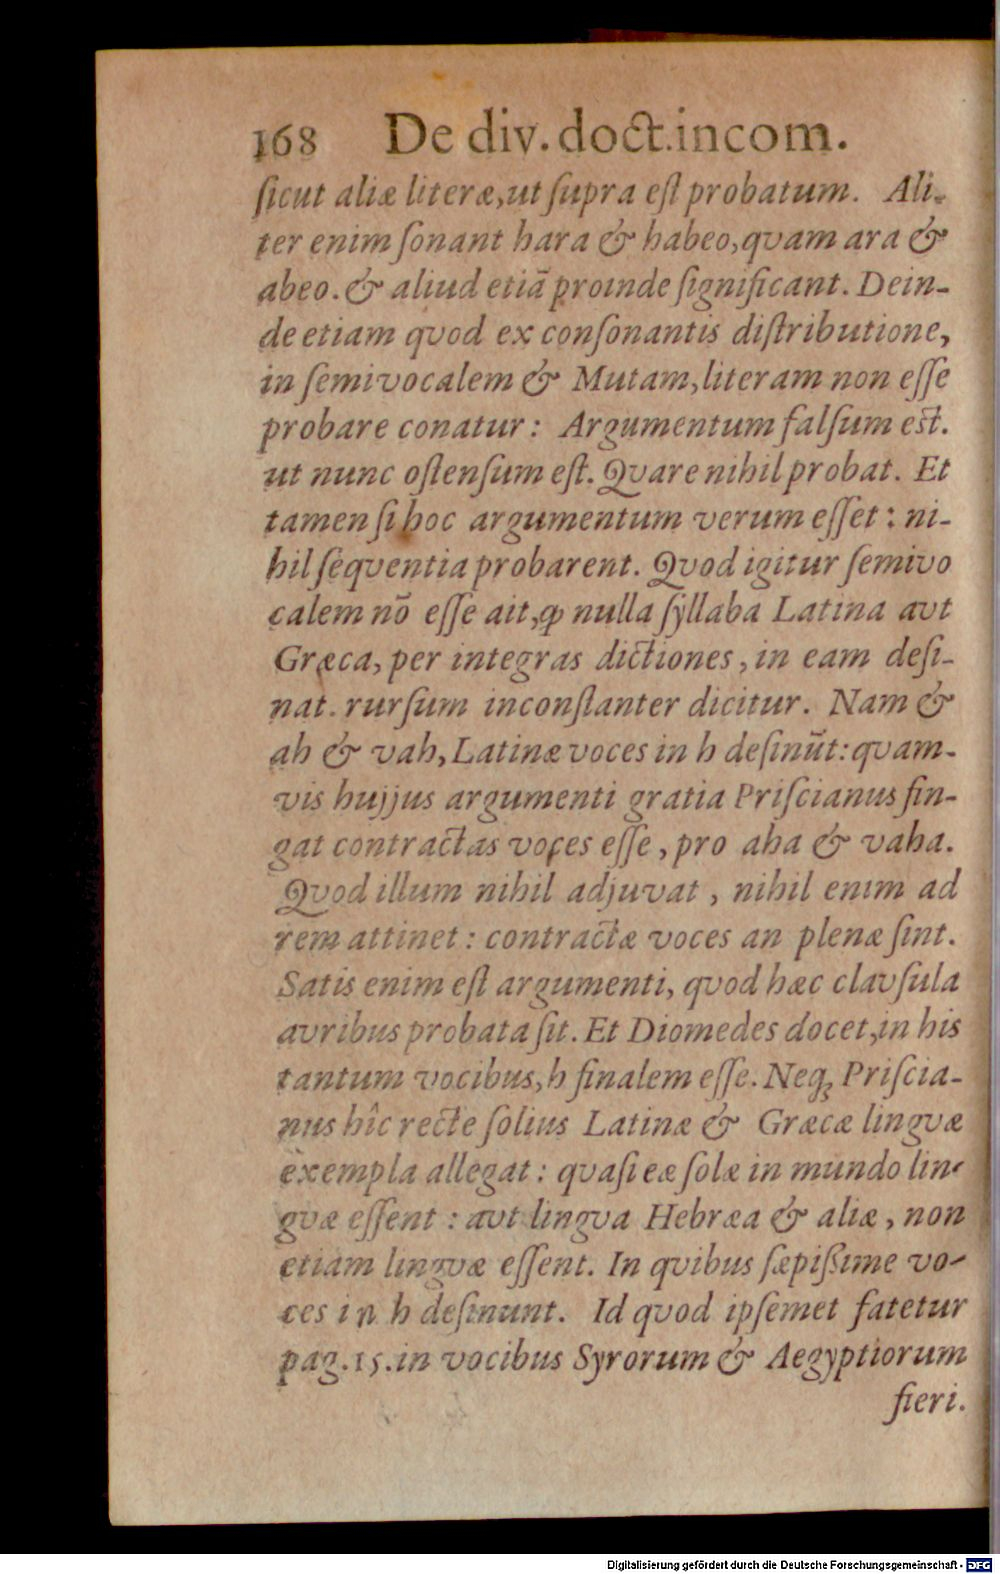 168 De div. doct. incom.
ſicut aliæ literæ, ut ſupra eſt probatum. Ali-
ter enim ſonant hara & habeo, qvam ara &
abeo. & aliud etiã proinde ſignificant. Dein-
de etiam qvod ex conſonantis diſtributione,
in ſemivocalem & Mutam, literam non eſſe
probare conatur: Argumentum falſum est.
ut nunc oſtenſum eſt. Qvare nihil probat. Et
tamen ſi hoc argumentum verum eſſet: ni-
hil ſeqventia probarent. Qvod igitur ſemivo
calem nō eſſe ait, ꝙ nulla ſyllaba Latina avt
Græca, per integras dictiones, in eam deſi-
nat. rurſum inconſtanter dicitur. Nam &
ah & vah, Latinæ voces in h deſinūt: qvam-
vis hujjus argumenti gratia Priſcianus fin-
gat contractas voces eſſe, pro aha & vaha.
Qvod illum nihil adjuvat, nihil enim ad
rem attinet: contractæ voces an plenæ ſint.
Satis enim eſt argumenti, qvod hæc clavſula
avribus probata ſit. Et Diomedes docet, in his
tantum vocibus, h finalem eſſe. Neq; Priſcia-
nus hîc recte ſolius Latinæ & Græcæ lingvæ
exempla allegat: qvaſi eæ ſolæ in mundo lin-
gvæ eſſent: avt lingva Hebræa & aliæ, non
etiam lingvæ eſſent. In qvibus ſæpißime vo-
ces in h deſinunt. Id qvod ipſemet fatetur
pag. 15. in vocibus Syrorum & Aegyptiorum
fieri.
Digitalisierung gefördert durch die Deutsche Forschungsgemeinschaft - DFG